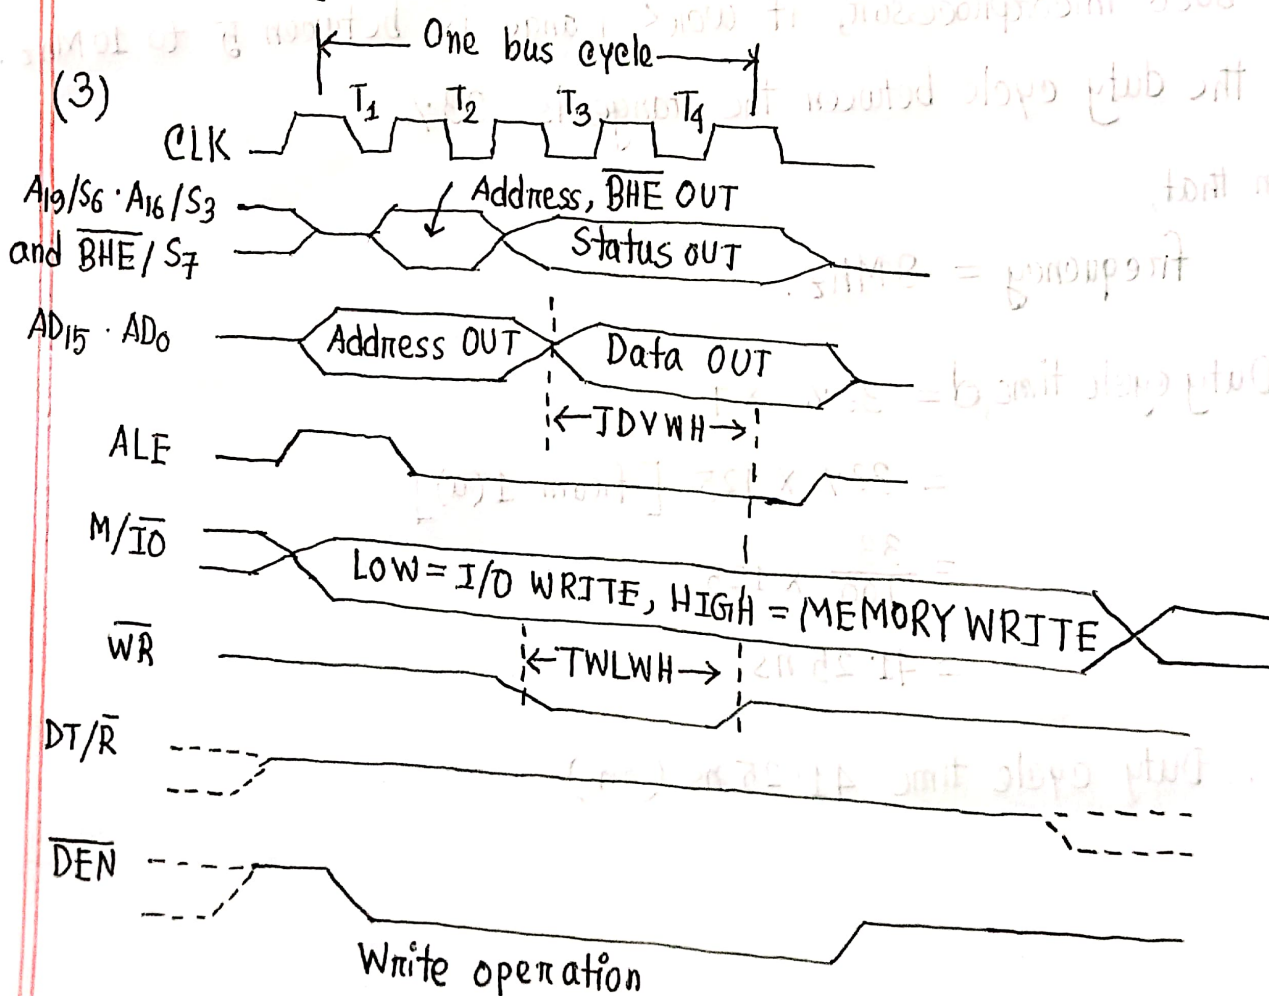 One bus cycle
(3)
T1 T2 T3 T4
CLK
A19/S6 · A16/S3
Address, B̅H̅E̅ OUT
and B̅H̅E̅/S7
Status OUT
AD15 · AD0
Address OUT
Data OUT
TDVWH
ALE
M/I̅O̅
LOW = I/O WRITE, HIGH = MEMORY WRITE
W̅R̅
TWLWH
DT/R̅
D̅E̅N̅
Write operation